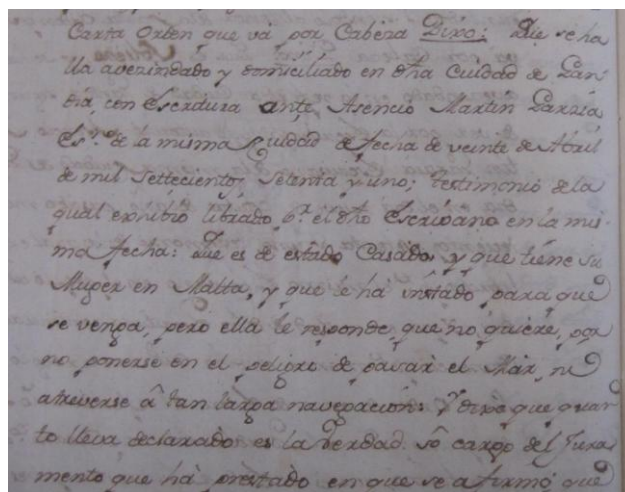 Carta Orden que vá por Cabeza Dixo: Que se ha
lla avezindado y domiciliado en dha Ciudad de Gan
dia con Escritura ante Asencio Martin Garzia
Es.no de la misma Ciudad de fecha de veinte de Abril
de mil Settecientos Setenta y uno; testimonio de la
qual exhibió librado p.r el dho Escrivano en la mis
ma fecha: Que es de estado Casado, y que tiene su
Muger en Malta, y que le há instado para que
se venga, pero ella le responde, que no quiere, por
no ponerse en el peligro de pasar el Mar, ni
atreverse â tan larga navegacion: Y dixo que quan
to lleva declarado es la Verdad só cargo del Jura
mento que há prestado en que se afirmó que